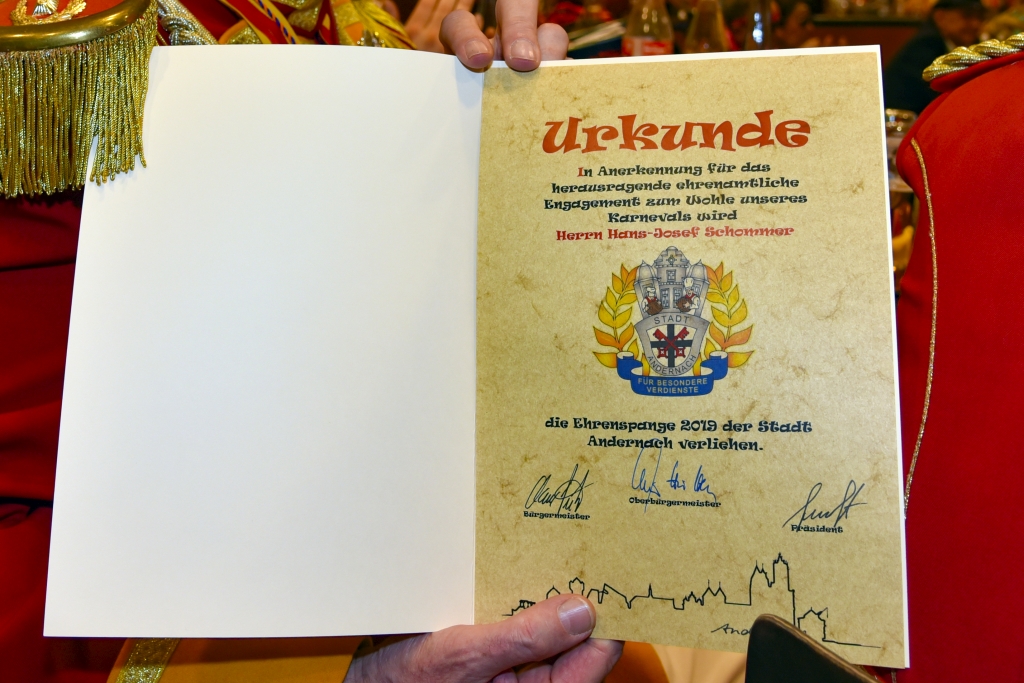 Urkunde
In Anerkennung für das
herausragende ehrenamtliche
Engagement zum Wohle unseres
Karnevals wird
Herrn Hans-Josef Schommer
STADT
ANDERNACH
FÜR BESONDERE
VERDIENSTE
die Ehrenspange 2019 der Stadt
Andernach verliehen.
Bürgermeister
Oberbürgermeister
Präsident